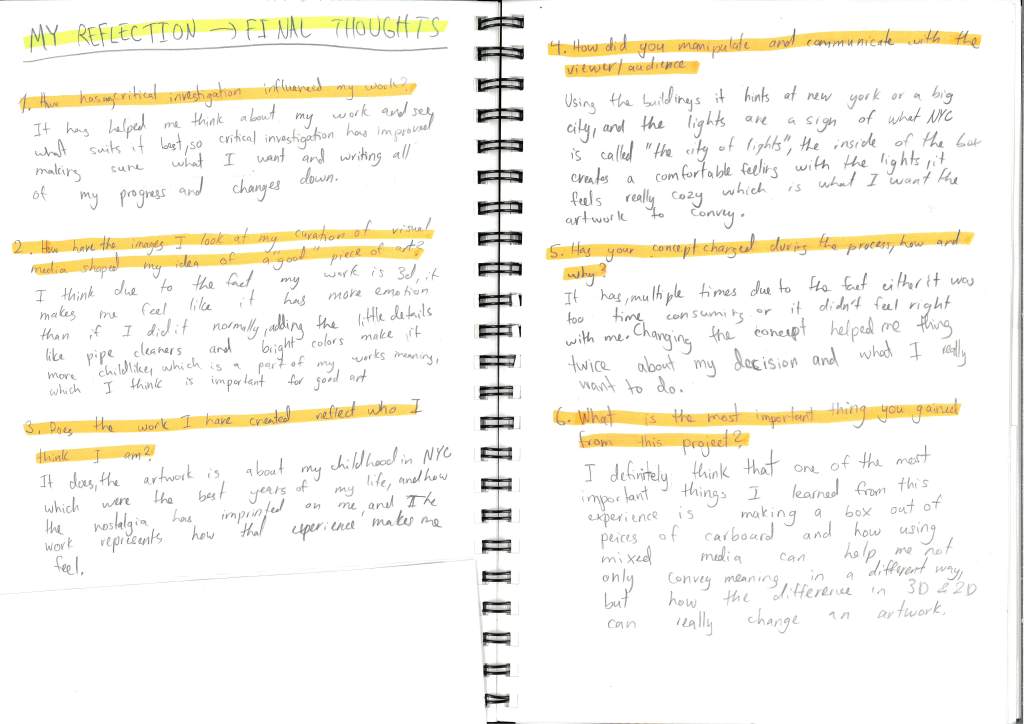 MY REFLECTION → FINAL THOUGHTS
1. How has my critical investigation influenced my work?
It has helped me think about my work and see
what suits it best, so critical investigation has improved
making sure what I want and writing all
of my progress and changes down.
2. How have the images I look at my curation of visual
media shaped my idea of a "good" piece of art?
I think due to the fact my work is 3d, it
makes me feel like it has more emotion
than if I did it normally, adding the little details
like pipe cleaners and bright colors make it
more childlike, which is a part of my works meaning,
which I think is important for good art
3. Does the work I have created reflect who I
think I am?
It does, the artwork is about my childhood in NYC
which were the best years of my life, and how
the nostalgia has imprinted on me, and the
work represents how that experience makes me
feel.
4. How did you manipulate and communicate with the
viewer/audience
Using the buildings it hints at new york or a big
city, and the lights are a sign of what NYC
is called "the city of lights", the inside of the box
creates a comfortable feeling with the lights, it
feels really cozy which is what I want the
artwork to convey.
5. Has your concept changed during the process, how and
why?
It has, multiple times due to the fact either it was
too time consuming or it didn't feel right
with me. Changing the concept helped me thing
twice about my decision and what I really
want to do.
6. What is the most important thing you gained
from this project?
I definitely think that one of the most
important things I learned from this
experience is making a box out of
peices of carboard and how using
mixed media can help me not
only convey meaning in a different way,
but how the difference in 3D & 2D
can really change an artwork.